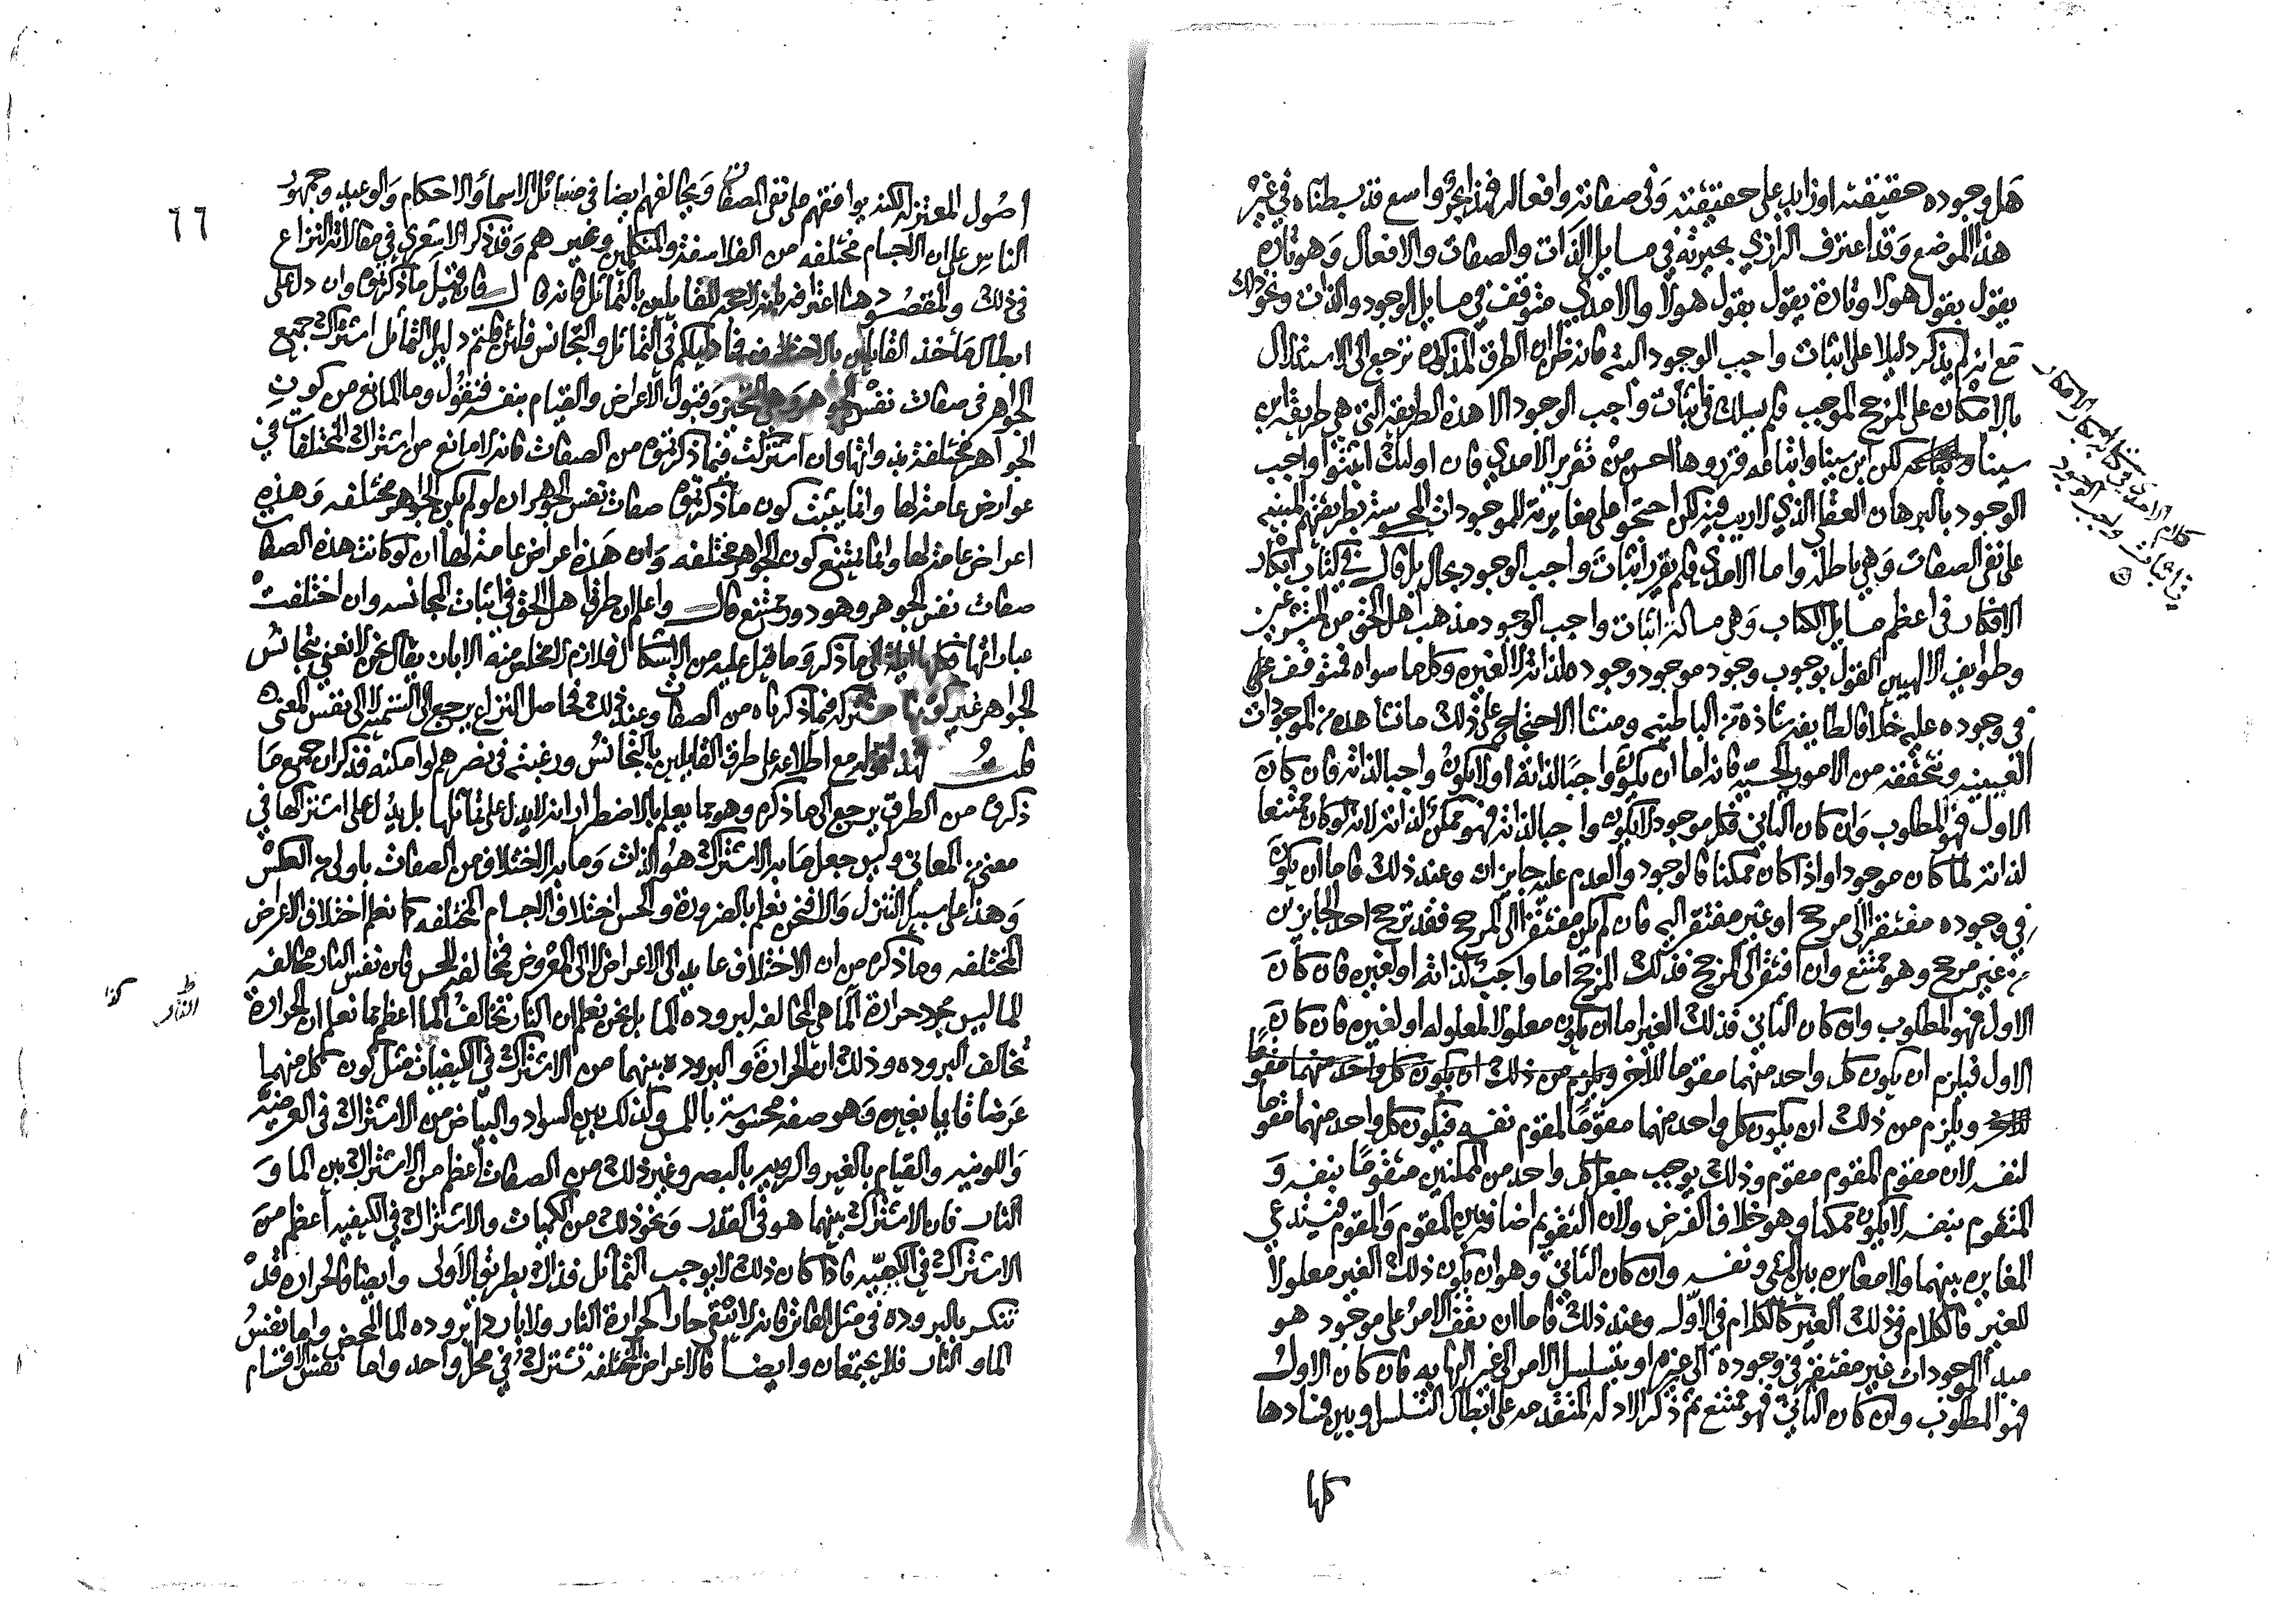 هل وجوده حقيقته او زايد على حقيقته وفي صفاته وافعاله فهذا بحر واسع قد بسطناه في غير
هذا الموضع وقد اعترف الرازي بحيرته في مسايل الذات والصفات والافعال وهو تارة
يقول بقول هولا وتارة يقول بقول هولا والامدي متوقف في مسايل الوجود والذات ونحو ذلك
مع انه لم يذكر دليلا على اثبات واجب الوجود البته فانه ظن ان الطرق المذكوره ترجع الى الاستدلال
بالامكان على المرجح الموجب فلم يسلك في اثبات واجب الوجود الا هذه الطريقه التي هي طريقة ابن
سينا لكن ابن سينا واتباعه قرروها احسن من تقرير الامدي فان اوليك اثبتوا واجب
الوجود بالبرهان العقلي الذي لا ريب فيه لكن احتجوا على مغايرته للموجودات المحسوسة بطريقتهم المبنيه
على نفي الصفات وهي باطله واما الامدي فلم يقرر اثبات واجب الوجود بحال بل قال في كتاب ابكار
الافكار في اعظم مسايل الكتاب وهي مسالة اثبات واجب الوجود مذهب اهل الحق من المتشرعين
وطوايف الالهيين القول بوجوب وجود موجود وجوده لذاته لا لغيره وكل ما سواه فمتوقف
في وجوده عليه خلافا لطايفه شاذه من الباطنيه ومنشا الاحتجاج على ذلك ما نشاهده من الموجودات
العينيه ونتحققه من الامور الحسيه فانه اما ان يكون واجبا لذاته او لا يكون واجبا لذاته فان كان
الاول فهو المطلوب وان كان الثاني فكل موجود لا يكون واجبا لذاته فهو ممكن لذاته لانه لو كان ممتنعا
لذاته لما كان موجودا واذا كان ممكنا فالوجود والعدم عليه جايزان وعند ذلك فاما ان يكون
في وجوده مفتقرا الى مرجح او غير مفتقر اليه فان لم يكن مفتقرا الى المرجح فقد ترجح احد الجايزين
من غير مرجح وهو ممتنع وان افتقر الى المرجح فذلك المرجح اما واجب لذاته او لغيره فان كان
الاول فهو المطلوب وان كان الثاني فذلك الغير اما ان يكون معلولا لمعلوله او لغيره فان كان
الاول فيلزم ان يكون كل واحد منهما مقوما للاخر ويلزم من ذلك ان يكون كل واحد منهما مقوما
للاخر ويلزم من ذلك ان يكون كل واحد منهما مقوما لمقوم نفسه فيكون كل واحد منهما مقوما
لنفسه لان مقوم المقوم مقوم وذلك يوجب جعل كل واحد من الممكنين متقوما بنفسه و
المتقوم بنفسه لا يكون ممكنا وهو خلاف الفرض ولان التقويم اضافة بين المقوم والمقوم فيستدعي
المغايره بينهما ولا مغايره بين الشي ونفسه وان كان الثاني وهو ان يكون ذلك الغير معلولا
للغير فالكلام في ذلك الغير كالكلام في الاول وعند ذلك فاما ان يقف الامر على موجود هو
مبدا الموجودات غير مفتقر في وجوده الى غيره او يتسلسل الامر الى غير النهايه فان كان الاول
فهو المطلوب وان كان الثاني فهو ممتنع ثم ذكر الادله المتقدمه على ابطال التسلسل وبين فسادها
كلها
كلام الامدي في كتاب ابكار الافكار
في اثبات واجب الوجود
٦٦
اصول المعتزله لكنه يوافقهم على نفي الصفات ويخالفهم ايضا في مسائل الاسما والاحكام والوعيد وجمهور
الناس على ان الاجسام مختلفه من الفلاسفة والمتكلمين وغيرهم وقد ذكر الاشعري في مقالاته النزاع
في ذلك والمقصود هنا اعترافه بانه لا حجه للقايلين بالتماثل فانه قال فان قيل ما ذكرتموه وان دل على
ابطال مأخذ القايلين بالاختلاف فما دليلكم في التماثل والتجانس فلئن قلتم دليل التماثل اشتراك جميع
الجواهر في صفات نفس الجوهر وهي التحيز وقبول الاعراض والقيام بنفسه فنقول وما المانع من كون
الجواهر مختلفة بذواتها وان اشتركت فيما ذكرتموه من الصفات فانه لا مانع من اشتراك المختلفات في
عوارض عامة لها وانما يثبت كون ما ذكرتموه صفات نفس الجوهر ان لو لم يكن الجواهر مختلفه وهذه
اعراض عامة لها وانما يمتنع كون الجواهر مختلفه وان هذه اعراض عامة لها ان لو كانت هذه الصفات
صفات نفس الجوهر وهو دور ممتنع قال واعلم ان طرق اهل الحق في اثبات المجانسه وان اختلفت
عباراتها فكلها ايلة الى ما ذكر وما قيل عليه من الاشكال فلازم لا مخلص منه الا بان يقال نحن لا نعني بتجانس
الجواهر غير كونها مشتركه فيما ذكرناه من الصفات وعند ذلك فحاصل النزاع يرجع الى التسميه لا الى نفس المعنى
قلت فهذا قوله مع اطلاعه على طرق القايلين بالتجانس ورغبته في نصرهم لو امكنه قد ذكر ان جميع ما
ذكروه من الطرق يرجع الى ما ذكره وهو مما يعلم بالاضطرار انه لا يدل على تماثلها بل يدل على اشتراكها في
معنى من المعاني وليس جعل ما به الاشتراك هو الذات وما به الاختلاف من الصفات باولى من العكس
وهذا على سبيل التنزل والا فنحن نعلم بالضرورة والحس اختلاف الاجسام المختلفه كما نعلم اختلاف الاعراض
المختلفه وما ذكره من ان الاختلاف عايد الى الاعراض لا الى المعروض فمخالفة للحس فان نفس النار مخالفه
للما ليس مجرد حرارة الما هي المخالفه لبروده الما بل نحن نعلم ان النار تخالف الما اعظم مما نعلم ان الحرارة
تخالف البروده وذلك ان الحرارة والبروده بينهما من الاشتراك في الكيفيات مثل كون كل منهما
عرضا قايما بغيره وهو صفه محسوسة باللمس وكذلك بين السواد والبياض من الاشتراك في العرضيه
واللونيه والقيام بالغير والرويه بالبصر وغير ذلك من الصفات اعظم من الاشتراك بين الما و
النار فان الاشتراك بينهما هو في القدر ونحو ذلك من الكميات والاشتراك في الكيفيه اعظم من
الاشتراك في الكميه فاذا كان ذلك لا يوجب التماثل فذاك بطريق الاولى وايضا فالحراره قد
تنكسر بالبروده في مثل الفاتر فانه لا يبقى حارا كحرارة النار ولا باردا بروده الما المحض واما نفس
الما والنار فلا يجتمعان وايضا فالاعراض المختلفه تشترك في محل واحد واما نفس الاقسام
النار
كذا